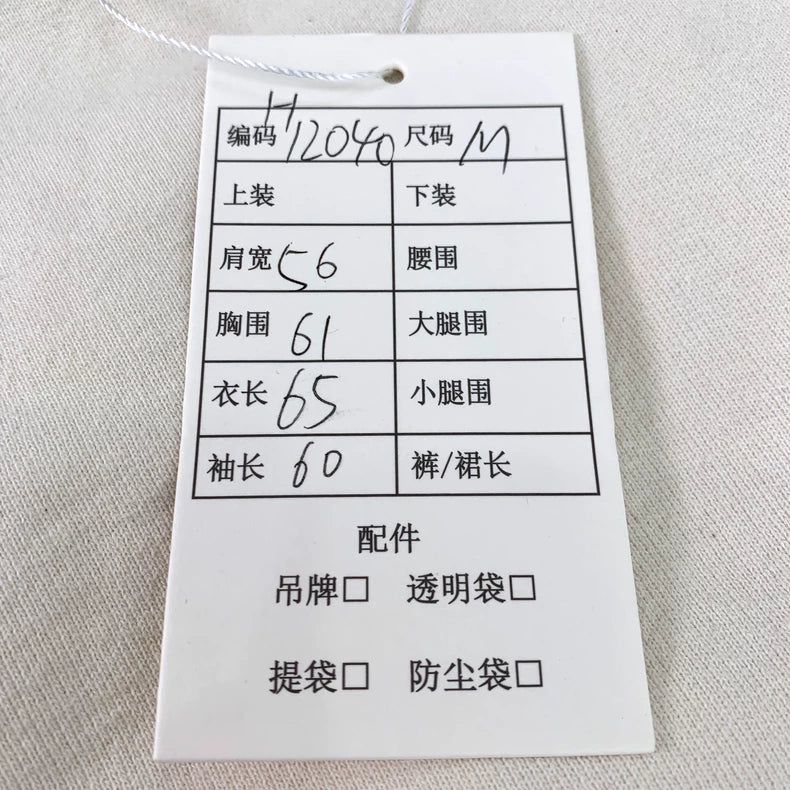 编码 H12040 尺码 M
上装 下装
肩宽 56 腰围
胸围 61 大腿围
衣长 65 小腿围
袖长 60 裤/裙长
配件
吊牌□ 透明袋□
提袋□ 防尘袋□